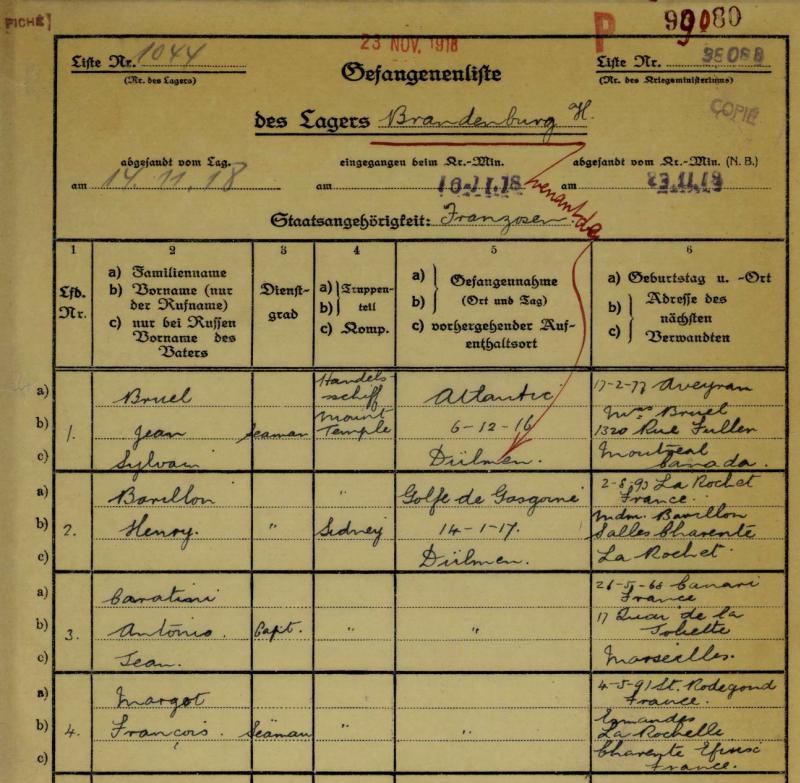 PICHÉ]
P 99080
90
Liste Nr. 1044
(Nr. des Lagers)
23 NOV. 1918
Gefangenenliste
Liste Nr. 38088
(Nr. des Kriegsministeriums)
COPIÉ
des Lagers Brandenburg H.
abgesandt vom Lag.
am 14.11.18
eingegangen beim Kr.-Min.
am 18.11.18
abgesandt vom Kr.-Min. (N. B.)
am 23.11.18
Staatsangehörigkeit: Franzosen.
1
Lfd.
Nr.
2
a) Familienname
b) Vorname (nur
der Rufname)
c) nur bei Russen
Vorname des
Vaters
3
Dienst-
grad
4
a) Truppen-
b) teil
c) Komp.
5
a) Gefangennahme
b) (Ort und Tag)
c) vorhergehender Auf-
enthaltsort
6
a) Geburtstag u. -Ort
b) Adresse des
c) nächsten
Verwandten
a) Bruel Handels-schiff Atlantic 17-2-77 Aveyran
b) 1. Jean Seaman Mount Temple 6-12-16 Mme Bruel 1320 Rue Fuller
c) Sylvain Dülmen. Montreal Canada.
a) Barillon " Golfe de Gasgoine 2-8-93 La Rochet France.
b) 2. Henry. " Sidney 14-1-17. Mdm. Barillon Salles Charente
c) Dülmen. La Rochet.
a) Caratini Canari France
b) 3. Antonio. Capt. " " 17 Quai de la Joliette
c) Jean. Marseilles.
a) Margot 4-5-91 St. Rodegond France.
b) 4. François. Seaman " " La Rochelle
c) Charente France.